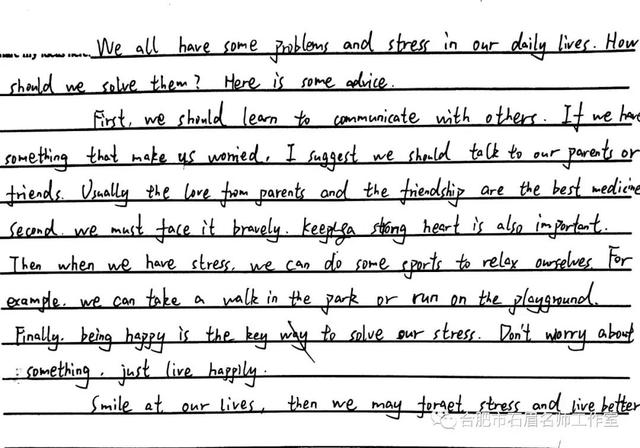 We all have some problems and stress in our daily lives. How
should we solve them? Here is some advice.
First, we should learn to communicate with others. If we have
something that make us worried, I suggest we should talk to our parents or
friends. Usually the love from parents and the friendship are the best medicine
Second, we must face it bravely. Keeping a strong heart is also important.
Then when we have stress, we can do some sports to relax ourselves. For
example, we can take a walk in the park or run on the playground.
Finally, being happy is the key way to solve our stress. Don't worry about
something, just live happily.
Smile at our lives, then we may forget stress and live better
合肥市石眉名师工作室